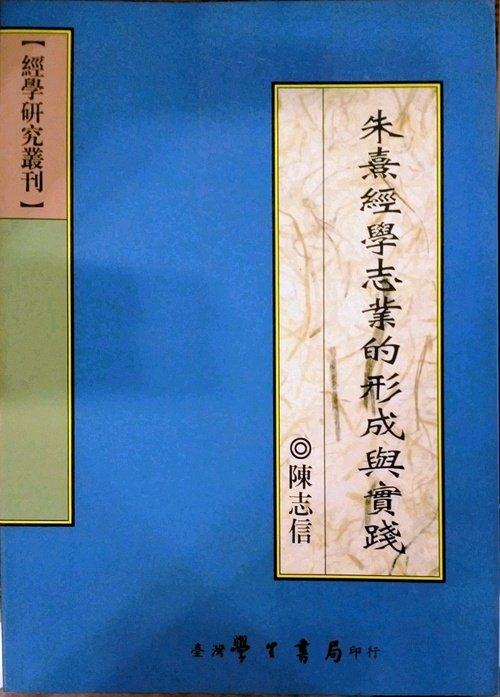 朱熹經學志業的形成與實踐
◎陳志信
【經學研究叢刊】
臺灣學生書局印行